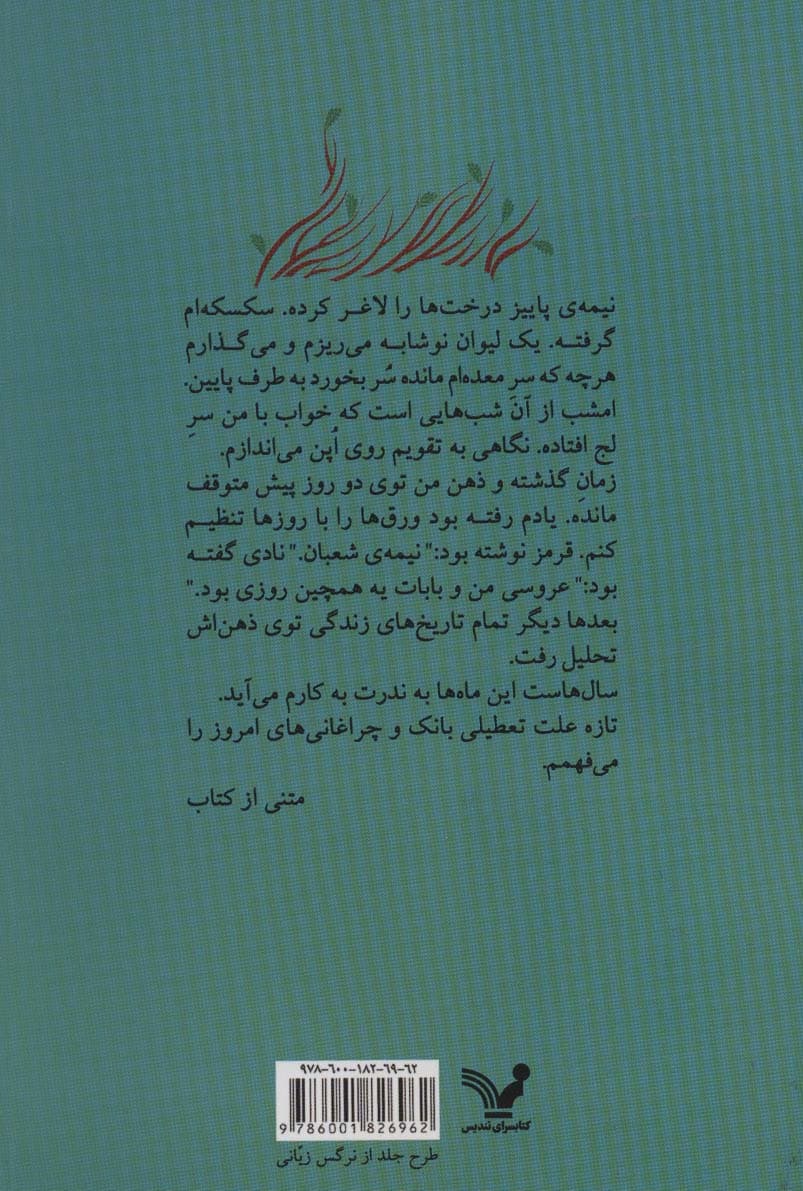 نیمه‌ی پاییز درخت‌ها را لاغـر کرده. سکسکه‌ام
گرفتـه. یک لیوان نوشابـه می‌ریزم و می‌گـذارم
هرچه که سر معده‌ام مانده سُر بخورد به طرف پایین.
امشب از آنَ شب‌هایی است که خواب با من سرِ
لج افتاده. نگاهی به تقویم روی اُپن می‌اندازم.
زمانِ گذشته و ذهن من توی دو روز پیش متوقف
مانده. یادم رفتـه بود ورق‌ها را با روزها تنظیـم
کنم. قرمز نوشته بود:" نیمه‌ی شعبان." نادی گفتـه
بود:" عروسی من و بابات یه همچین روزی بود."
بعدها دیگر تمام تاریخ‌های زندگی توی ذهن‌اش
تحلیل رفت.
سال‌هاست این ماه‌ها به ندرت به کارم می‌آید.
تازه علت تعطیلی بانک و چراغانی‌های امروز را
می‌فهمم.
متنی از کتاب
۹۷۸-۶۰۰-۱۸۲-۶۹-۶۲
9 786001 826962
کتابسرای تندیس
طرح جلد از نرگس زیّانی